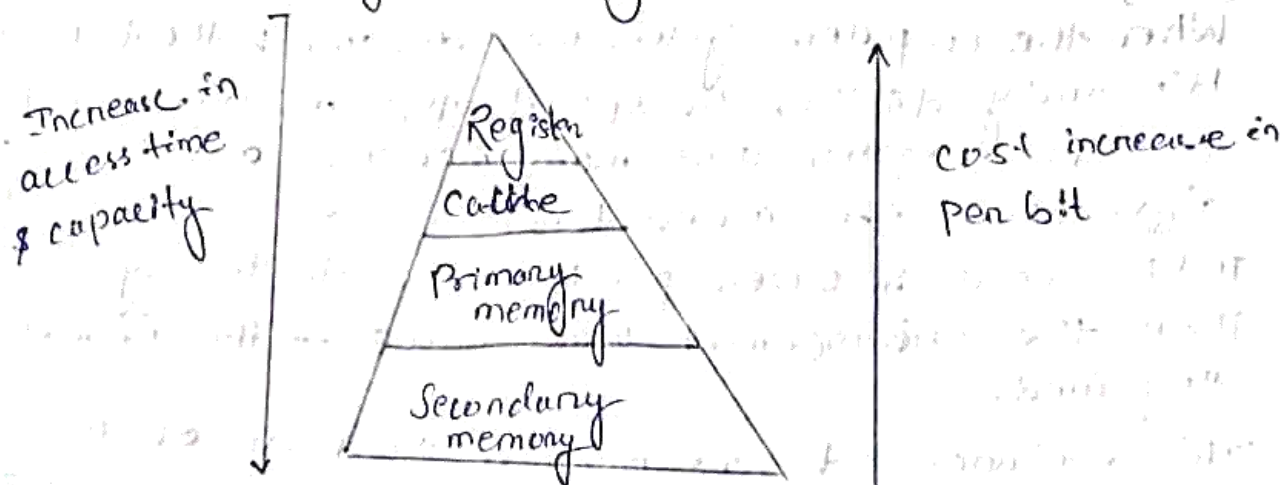 Increase in
access time
& capacity
Register
Cache
Primary
memory
Secondary
memory
cost increase in
per bit